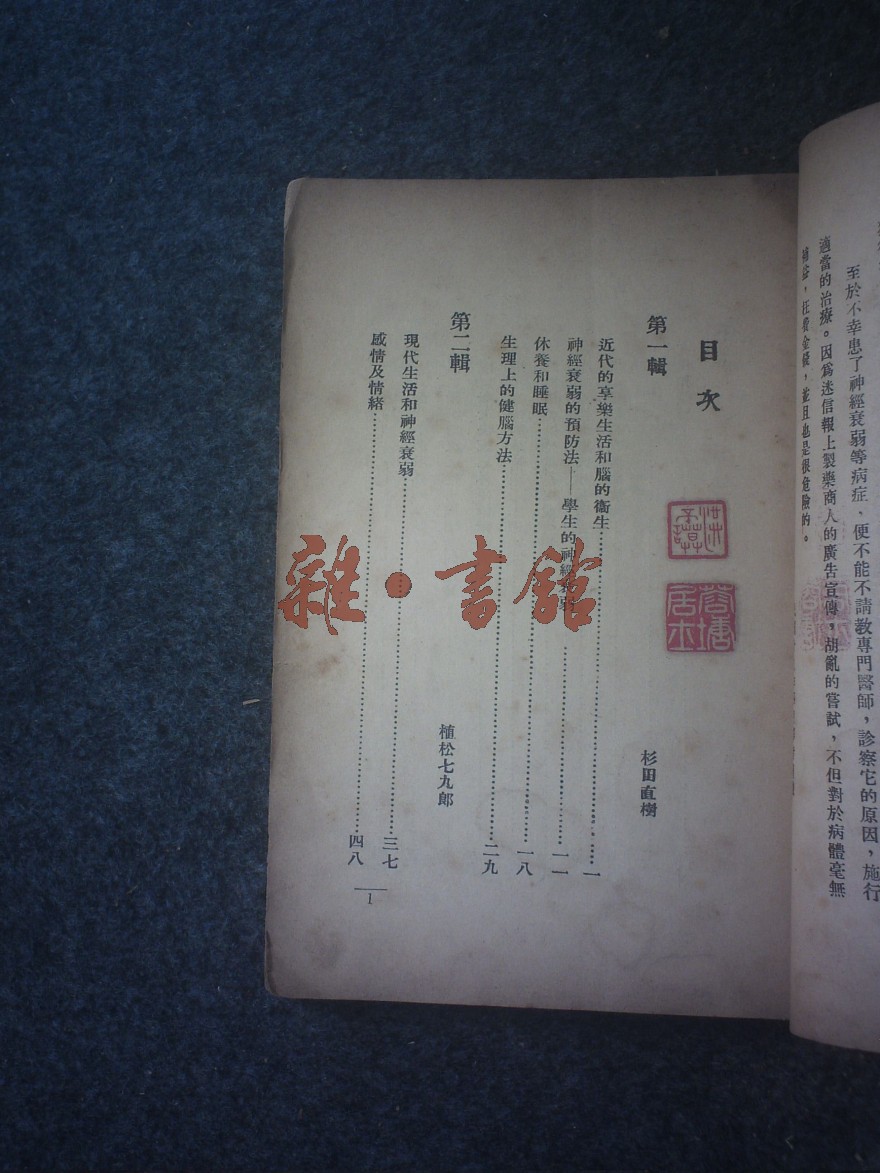 至於不幸患了神經衰弱等病症，便不能不請教專門醫師，診察它的原因，施行
適當的治療。因爲迷信報上製藥商人的廣告宣傳，胡亂的嘗試，不但對於病體毫無
補益，枉費金錢，並且也是很危險的。
目次
第一輯 杉田直樹
近代的享樂生活和腦的衞生……一
神經衰弱的預防法——學生的神經衰弱……一一
休養和睡眠……一八
生理上的健腦方法……二九
第二輯 植松七九郎
現代生活和神經衰弱……三七
感情及情緒……四八
1
雜·書館